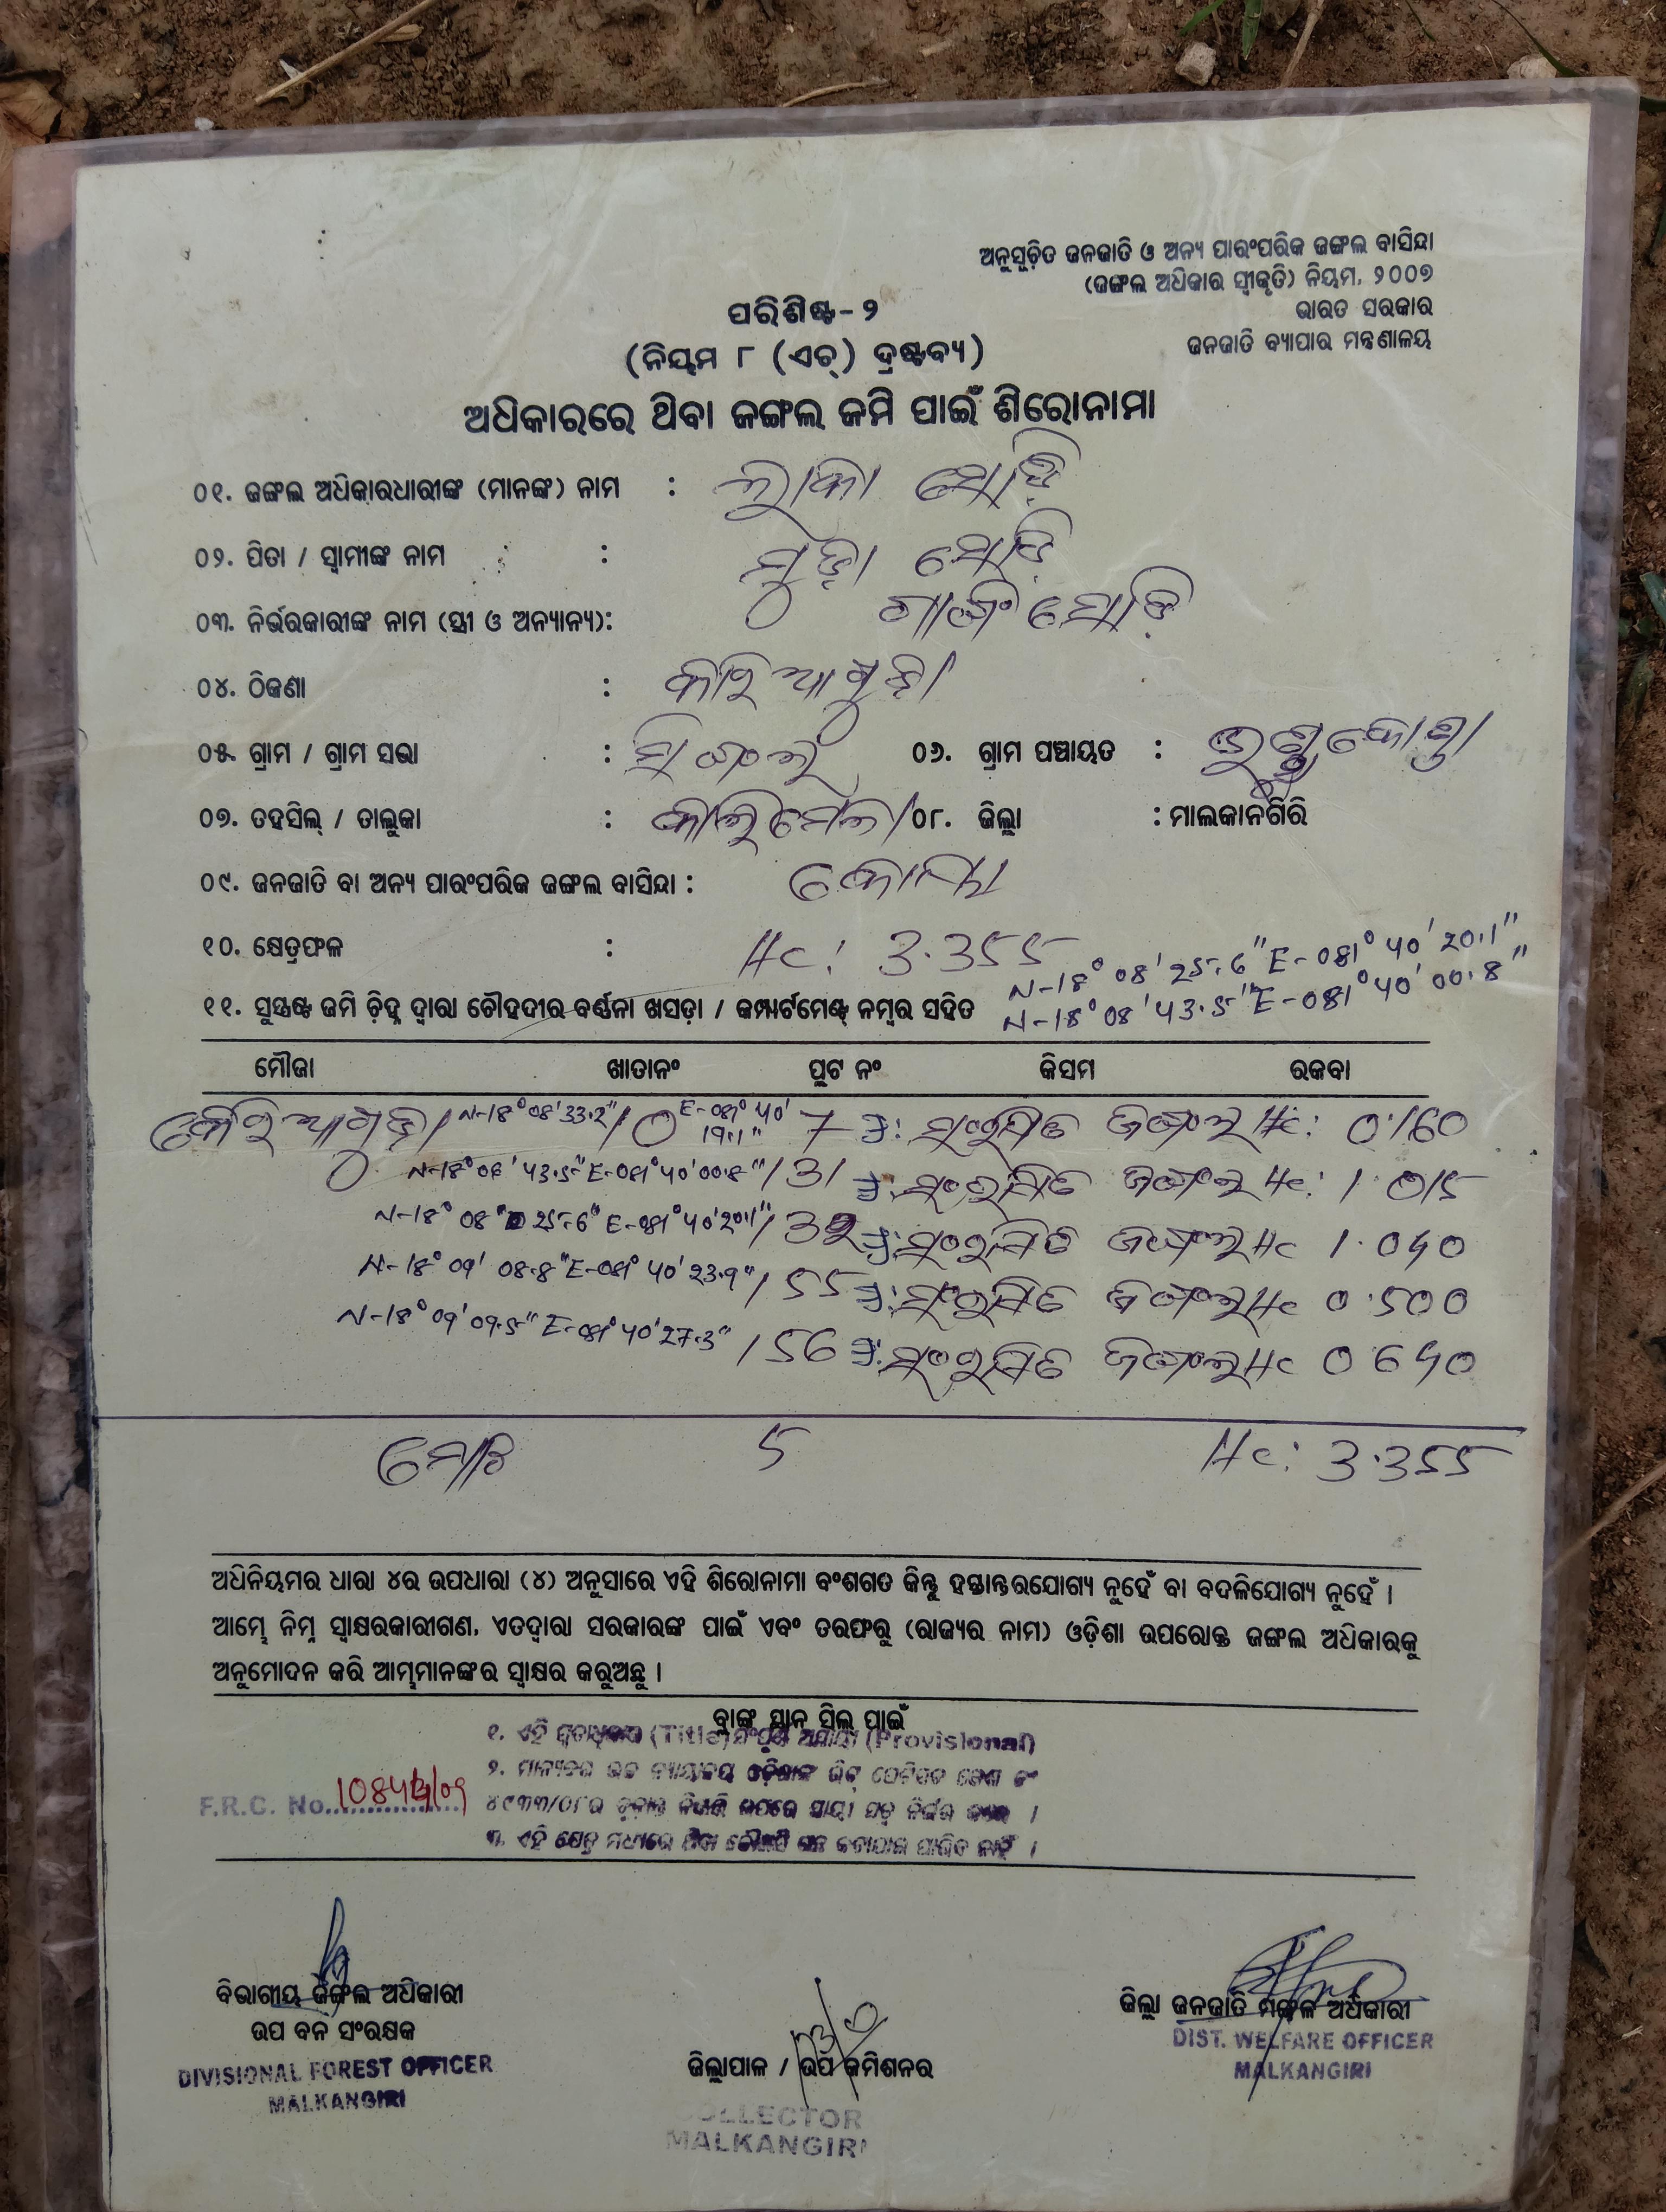 ଅନୁସୂଚିତ ଜନଜାତି ଓ ଅନ୍ୟ ପାରଂପରିକ ଜଙ୍ଗଲ ବାସିନ୍ଦା
(ଜଙ୍ଗଲ ଅଧିକାର ସ୍ୱୀକୃତି) ନିୟମ, ୨୦୦୭
ଭାରତ ସରକାର
ଜନଜାତି ବ୍ୟାପାର ମନ୍ତ୍ରଣାଳୟ
ପରିଶିଷ୍ଟ-୨
(ନିୟମ ୮ (ଏଚ୍) ଦ୍ରଷ୍ଟବ୍ୟ)
ଅଧିକାରରେ ଥିବା ଜଙ୍ଗଲ ଜମି ପାଇଁ ଶିରୋନାମା
୦୧. ଜଙ୍ଗଲ ଅଧିକାରଧାରୀଙ୍କ (ମାନଙ୍କ) ନାମ :
୦୨. ପିତା / ସ୍ୱାମୀଙ୍କ ନାମ : ମୁଡ଼ା ସୋଡ଼ି
୦୩. ନିର୍ଭରକାରୀଙ୍କ ନାମ (ସ୍ତ୍ରୀ ଓ ଅନ୍ୟାନ୍ୟ): ସୋଡ଼ି
୦୪. ଠିକଣା :
୦୫. ଗ୍ରାମ / ଗ୍ରାମ ସଭା : ୦୬. ଗ୍ରାମ ପଞ୍ଚାୟତ :
୦୭. ତହସିଲ୍ / ତାଲୁକା : କାଲିମେଳା ୦୮. ଜିଲ୍ଲା : ମାଲକାନଗିରି
୦୯. ଜନଜାତି ବା ଅନ୍ୟ ପାରଂପରିକ ଜଙ୍ଗଲ ବାସିନ୍ଦା : କୋୟା
୧୦. କ୍ଷେତ୍ରଫଳ : Hc: 3.355
N-18° 08' 25.6" E-081° 40' 20.1"
୧୧. ସୁସ୍ପଷ୍ଟ ଜମି ଚିହ୍ନ ଦ୍ୱାରା ଚୌହଦୀର ବର୍ଣ୍ଣନା ଖସଡ଼ା / କମ୍ପାର୍ଟମେଣ୍ଟ୍ ନମ୍ବର ସହିତ N-18° 08' 43.5" E-081° 40' 00.8"
ମୌଜା ଖାତାନଂ ପ୍ଲଟ ନଂ କିସମ ରକବା
N-18° 08' 33.2" E-081° 40' 19.1" 7 ସଂରକ୍ଷିତ ଜଙ୍ଗଲ Hc: 0.160
N-18° 08' 43.5" E-081° 40' 00.8" / 31 ସଂରକ୍ଷିତ ଜଙ୍ଗଲ Hc: 1.015
N-18° 08' 25.6" E-081° 40' 20.1" / 32 ସଂରକ୍ଷିତ ଜଙ୍ଗଲ Hc 1.040
N-18° 09' 08.8" E-081° 40' 23.9" / 55 ସଂରକ୍ଷିତ ଜଙ୍ଗଲ Hc 0.500
N-18° 09' 09.5" E-081° 40' 27.3" / 56 ସଂରକ୍ଷିତ ଜଙ୍ଗଲ Hc 0.640
ମୋଟ 5 Hc: 3.355
ଅଧିନିୟମର ଧାରା ୪ର ଉପଧାରା (୪) ଅନୁସାରେ ଏହି ଶିରୋନାମା ବଂଶଗତ କିନ୍ତୁ ହସ୍ତାନ୍ତରଯୋଗ୍ୟ ନୁହେଁ ବା ବଦଳିଯୋଗ୍ୟ ନୁହେଁ ।
ଆମ୍ଭେ ନିମ୍ନ ସ୍ୱାକ୍ଷରକାରୀଗଣ, ଏତଦ୍ୱାରା ସରକାରଙ୍କ ପାଇଁ ଏବଂ ତରଫରୁ (ରାଜ୍ୟର ନାମ) ଓଡ଼ିଶା ଉପରୋକ୍ତ ଜଙ୍ଗଲ ଅଧିକାରକୁ
ଅନୁମୋଦନ କରି ଆମ୍ଭମାନଙ୍କର ସ୍ୱାକ୍ଷର କରୁଅଛୁ ।
ବ୍ଲାଙ୍କ ସ୍ଥାନ ସିଲ୍ ପାଇଁ
୧. ଏହି (Title) (Provisional)
F.R.C. No.
୪୯୩୩/୦୮ର
୩. ଏହି କ୍ଷେତ୍ର ମଧ୍ୟରେ ଥିବା
ବିଭାଗୀୟ ଜଙ୍ଗଲ ଅଧିକାରୀ
ଉପ ବନ ସଂରକ୍ଷକ
DIVISIONAL FOREST OFFICER
MALKANGIRI
ଜିଲ୍ଲାପାଳ / ଉପ କମିଶନର
COLLECTOR
MALKANGIRI
ଜିଲ୍ଲା ଜନଜାତି ମଙ୍ଗଳ ଅଧିକାରୀ
DIST. WELFARE OFFICER
MALKANGIRI